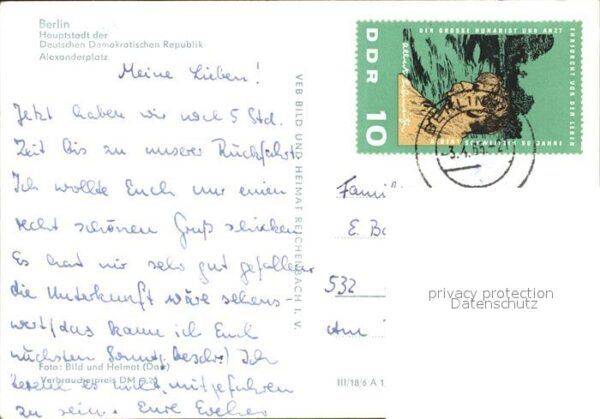 Berlin
Hauptstadt der
Deutschen Demokratischen Republik
Alexanderplatz
Meine Lieben!
Jetzt haben wir noch 5 Std.
Zeit bis zu unserer Rückfahrt.
Ich wollte Euch nur einen
recht schönen Gruß schicken
Es hat mir sehr gut gefallen
die Unterkunft wäre sehens-
wert (das kann ich Euch
nächsten Ich
bereue es nicht, mitgefahren
zu sein. Eure
Foto: Bild und Heimat
Verbraucherpreis DM
VEB BILD UND HEIMAT REICHENBACH I. V.
III/18/6 A 1
DDR 10
DER GROSSE HUMANIST UND ARZT
EHRFURCHT VOR DEM LEBEN
ALBERT SCHWEITZER 90 JAHRE
BERLIN
Famil
E. Ba
532
Am
privacy protection
Datenschutz